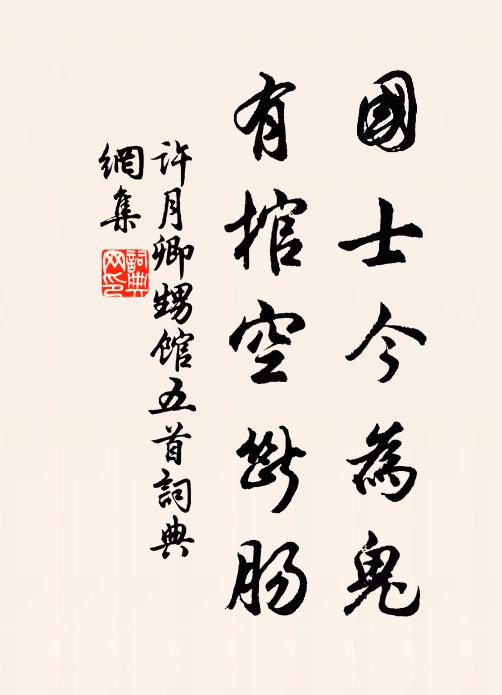 國士今為鬼
有棺空斷腸
許月卿甥館五首詞典
網集
詞典網印